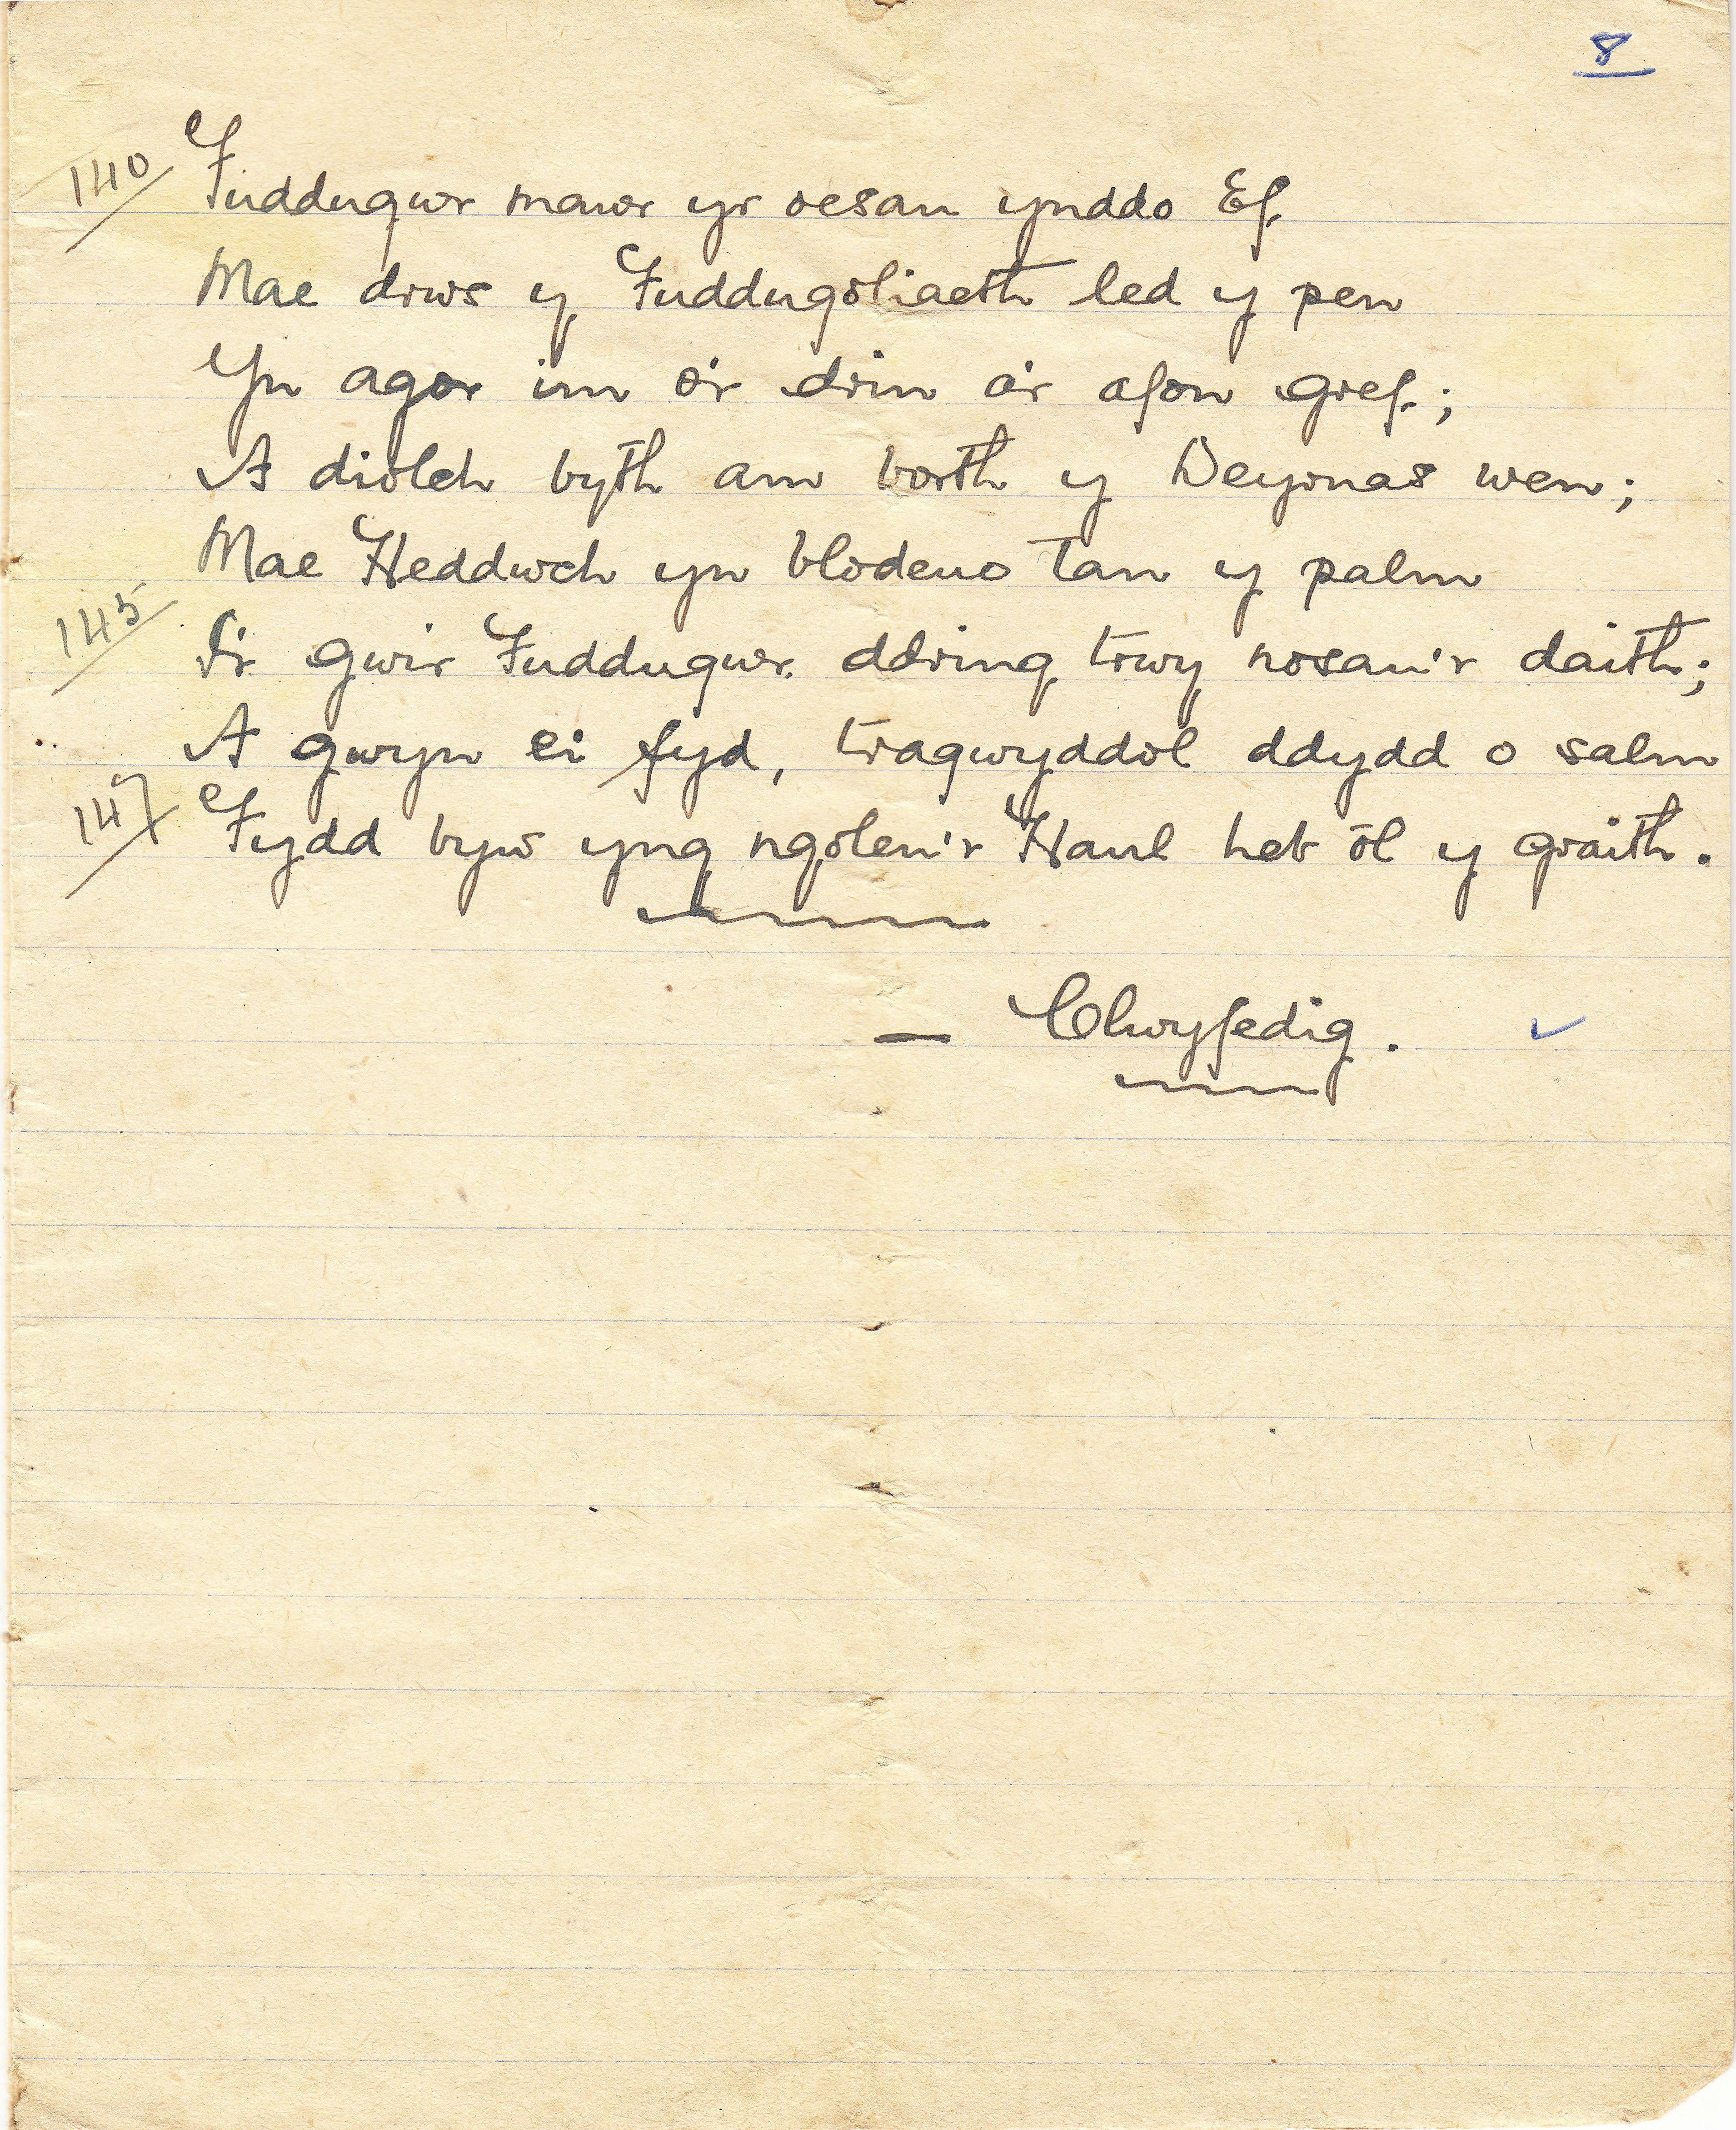 8
140 Fuddugwr mawr yr oesau ynddo Ef
Mae drws y Fuddugoliaeth led y pen
Yn agor im o'r drin a'r afon gref;
A diolch byth am borth y Deyrnas wen;
Mae Heddwch yn blodeuo tan y palm
145 I'r gwir Fuddugwr ddring trwy nosau'r daith;
A gwyn ei fyd, tragwyddol ddydd o salm
147 Fydd byw yng ngoleu'r Haul heb ôl y graith.
— Clwyfedig.